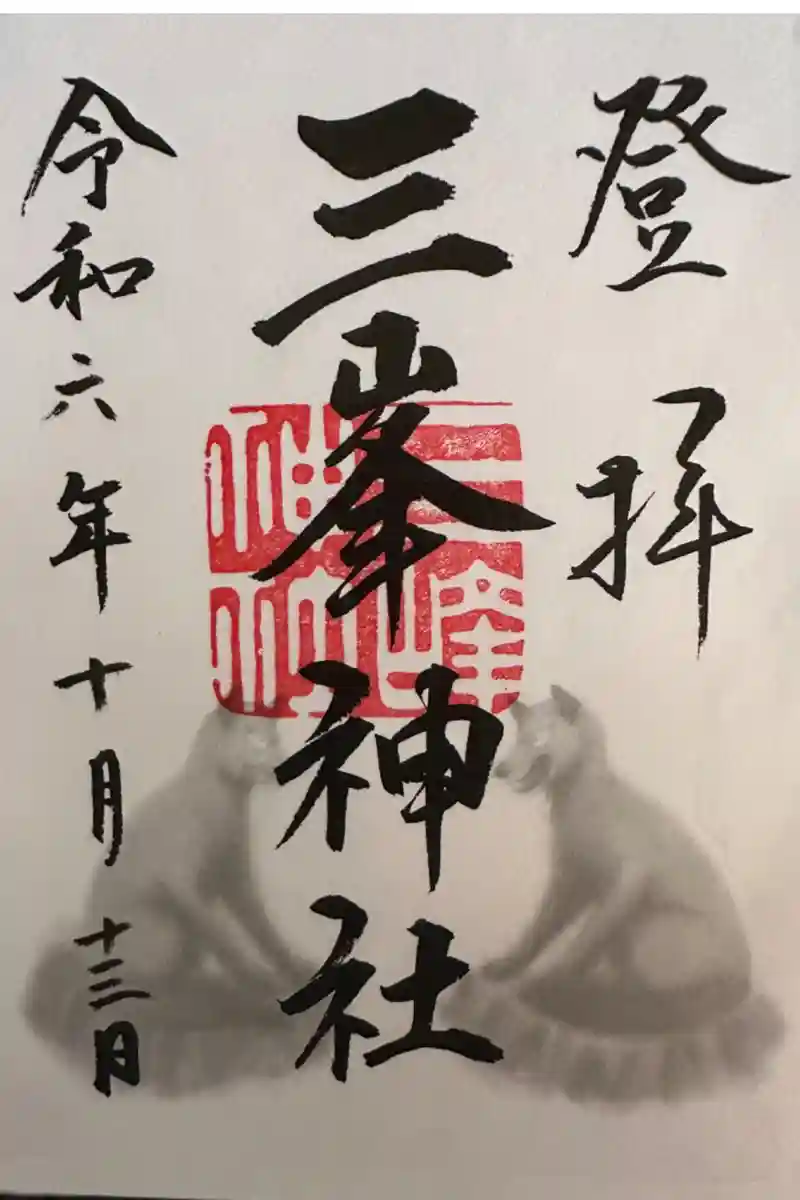 登拝
三峯神社
三峯神社
令和六年十月十三日